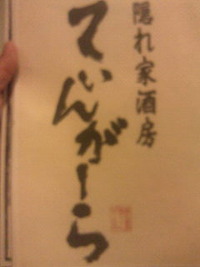 隠れ家酒房
てぃんがーら